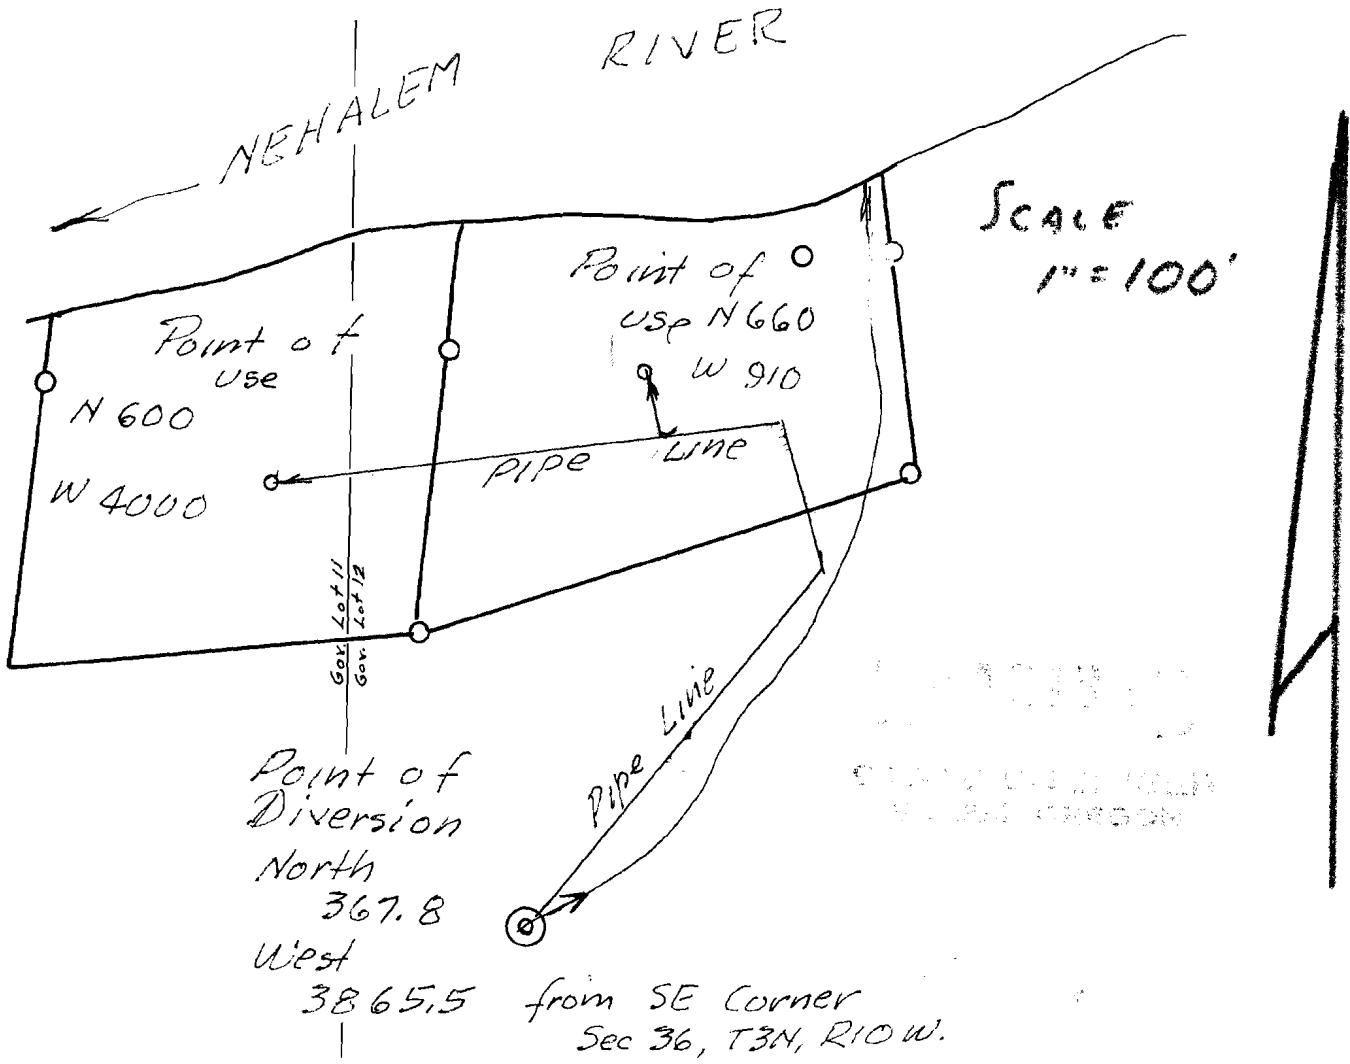 NEHALEM RIVER
SCALE
1" = 100'
Point of
use N 660
W 910
Point of
use
N 600
W 4000
PIPE LINE
Gov. Lot 11
Gov. Lot 12
Pipe Line
Point of
Diversion
North
367.8
West
3865.5 from SE Corner
Sec 36, T3N, R10W.